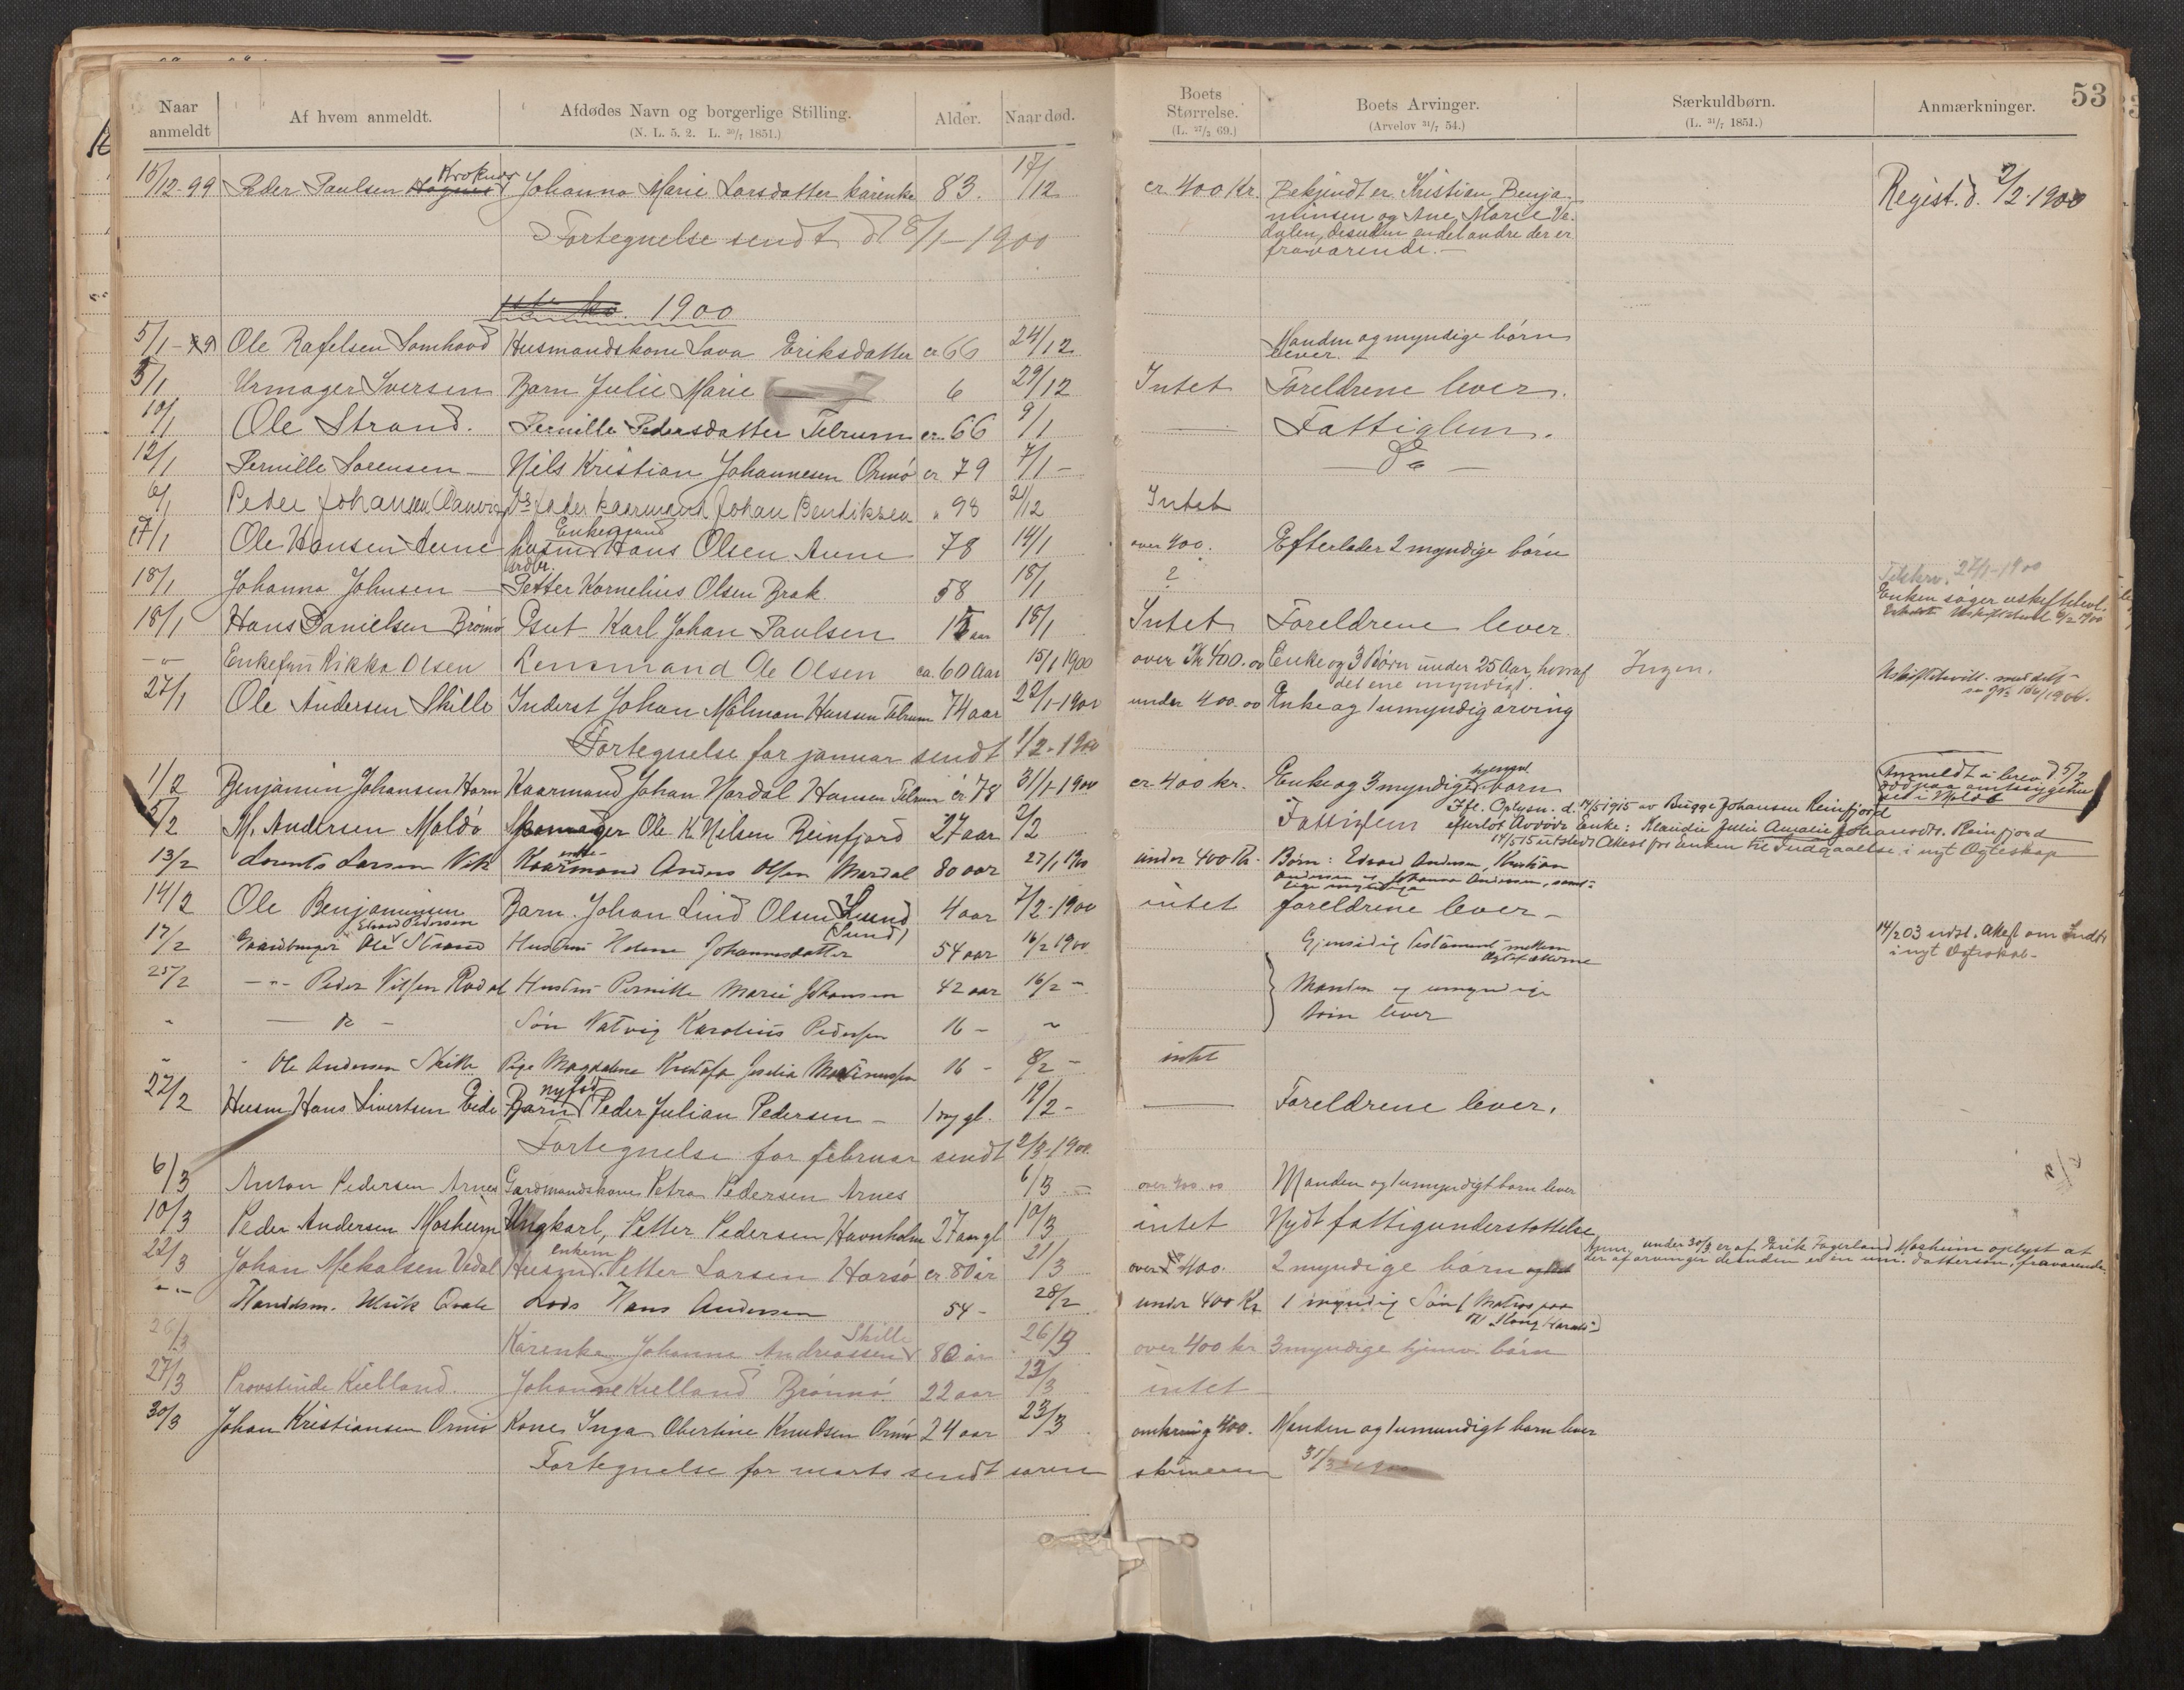 53
Naar anmeldt
Af hvem anmeldt.
Afdødes Navn og borgerlige Stilling.
(N. L. 5. 2. L. 30/7 1851.)
Alder.
Naar død.
Boets Størrelse.
(L. 27/3 69.)
Boets Arvinger.
(Arvelov 31/7 54.)
Særkuldbørn.
(L. 31/7 1851.)
Anmærkninger.
18/12-99 Peder Paulsen Hognes Kroknes Johanna Marie Larsdatter kårenke 83. 17/12 cr 400 Kr. Bekjendt er Kristian Benja- Regist. d. 2/2-1900
minsen og Ane Marie Va-
dalen, desuden endel andre der er
fraværende.
Fortegnelse sendt d 8/1-1900
1900
5/1 Ole Rafelsen Somhovd Husmandskone Lava Eriksdatter cr 66 24/12 Manden og myndige börn
lever.
5/1 Urmager Iversen Barn Julie Marie 6 29/12 Intet Foreldrene lever.
10/1 Ole Strand. Pernille Pedersdatter Tilrum cr. 66 9/1 — Fattiglem.
12/1 Pernille Sorensen — Nils Kristian Johannesen Ormö cr 79 7/1 — Do —
6/1 Peder Johansen Ds fader kaarmand Johan Bendiksen " 98 21/12 Intet
17/1 Ole Hansen Aune Enkemand Hans Olsen Aune 78 14/1 over 400. Efterlader 2 myndige börn
18/1 Johanna Johnsen — Petter Kornelius Olsen Brak 58 18/1 ? 27/1-1900
Enken söger
18/1 Hans Danielsen Brömö Karl Johan Paulsen 15 aar 18/1 Intet Foreldrene lever.
-"- Enkefru Rikka Olsen Lensmand Ole Olsen ca. 60 Aar 15/1 1900 over Kr 400.00 Enke og 3 Børn under 25 Aar, hvoraf Ingen.
det ene myndigt.
27/1 Ole Andersen Skille Inderst Johan Mölman Hansen Tilrum 74 aar 22/1-1900 under 400.00 Enke og 1 umyndig arving
Fortegnelse for januar sendt 1/2-1900
1/2 Benjamin Johansen Horn Kaarmand Johan Nordal Hansen Tilrum cr 78 31/1-1900 cr. 400 kr. Enke og 3 myndige hjemv. born Anmeldt i brev d 5/2
5/2 M. Andersen Moldö Skomager Ole K. Nilsen Reinfjord 27 aar 2/2 Fattiglem Ifl. Oplysn. d. 14/5 1915 av Bugge Johansen Reinfjord
efterlot Avdøde Enke: Klaudie Julie Amalie Johansdtr. Reinfjord
14/5 15 utstedt Attest for Enken til Indgaaelse i nyt Egteskap
13/2 Lorents Larsen Vik Kaarmand Anders Olsen Mardal 80 aar 27/1 1900 under 400 Kr. Børn: Edvard Andersen, Kristian
Andersen og Johanna Andersen, samt-
lige myndige
14/2 Ole Benjaminsen Barn Johan Lind Olsen Sund (Sund) 4 aar 7/2-1900 intet foreldrene lever —
17/2 Gaardbruger Ole Strand Edvard Pedersen Hustru Helene Johannesdatter 54 aar 16/2 1900 Gjensidig Testament mellem 14/2 03 udst. Attest om Indtr.
Egtefællerne i nyt Egteskab —
25/2 -"- Peder Nilsen Rodal Hustru Pernille Marie Johansen 42 aar 16/2 - Manden og umyndige
børn lever
" Do - Søn Natvig Karolius Pedersen 16 - "
" Ole Andersen Skille Pige Magdalena Kristofa Josefia Marinussen 16 - 8/2 - intet
22/2 Husm Hans Sivertsen Eide nyfødt Barn Peder Julian Pedersen — 1 gl. 19/2 - — Foreldrene lever.
Fortegnelse for februar sendt 2/3-1900
6/3 Anton Pedersen Arnes Gardmandskone Petra Pedersen Arnes 6/3 - over 400.00 Manden og 1 umyndigt barn lever
10/3 Peder Andersen Mosheim Ungkarl, Petter Pedersen Havnholm 27 aar gl 10/3 intet Nydt fattigunderstøttelse
22/3 Johan Mekalsen Vedal Husmd. enkem Petter Larsen Horsö cr 80 år 21/3 over 400. 2 myndige börn Anm. under 30/3 er af Erik Fagerland Mosheim oplyst at
der af arvinger desuden er en um. dattersøn, fraværende.
-"- Handelsm. Ulrik Qvale Lods Hans Andersen 54 - 28/2 under 400 Kr 1 myndig Søn (Matros paa
26/3 Kårenke Johanne Andreassen Skille 80 år 26/3 over 400 kr 3 myndige hjemv. börn
27/3 Provstinde Kielland. Johanne Kielland Brönnö 22 aar 23/3 intet
30/3 Johan Kristiansen Ormö Kone Inga Obertine Knudsen Ormö 24 aar 23/3 omkring 400. Manden og 1 umundigt barn lever
Fortegnelse for marts sendt soren skriveren 31/3 1900